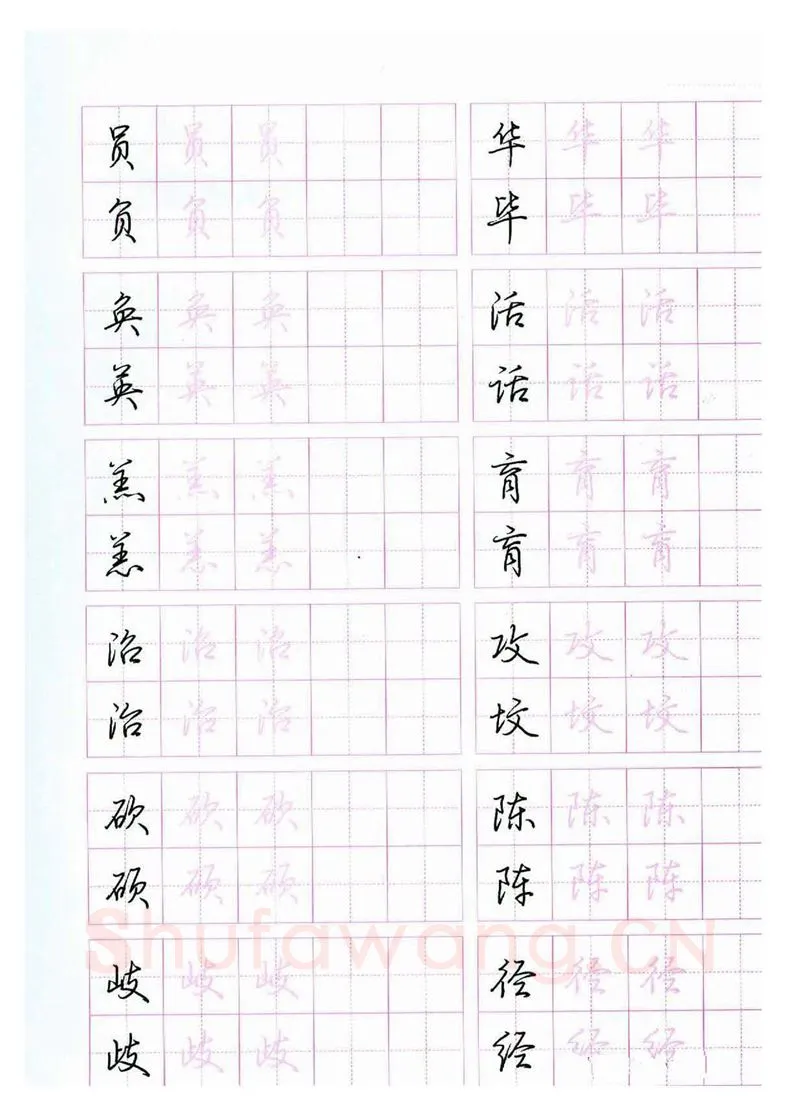 员 员 员 华 华 华
负 负 负 毕 毕 毕
奂 奂 奂 活 活 活
英 英 英 话 话 话
羔 羔 羔 育 育 育
恙 恙 恙 肓 肓 肓
冶 冶 冶 攻 攻 攻
治 治 治 坟 坟 坟
砍 砍 砍 陈 陈 陈
硕 硕 硕
Shufawang.CN
岐 岐 岐 径 径 径
歧 歧 歧 经 经 经